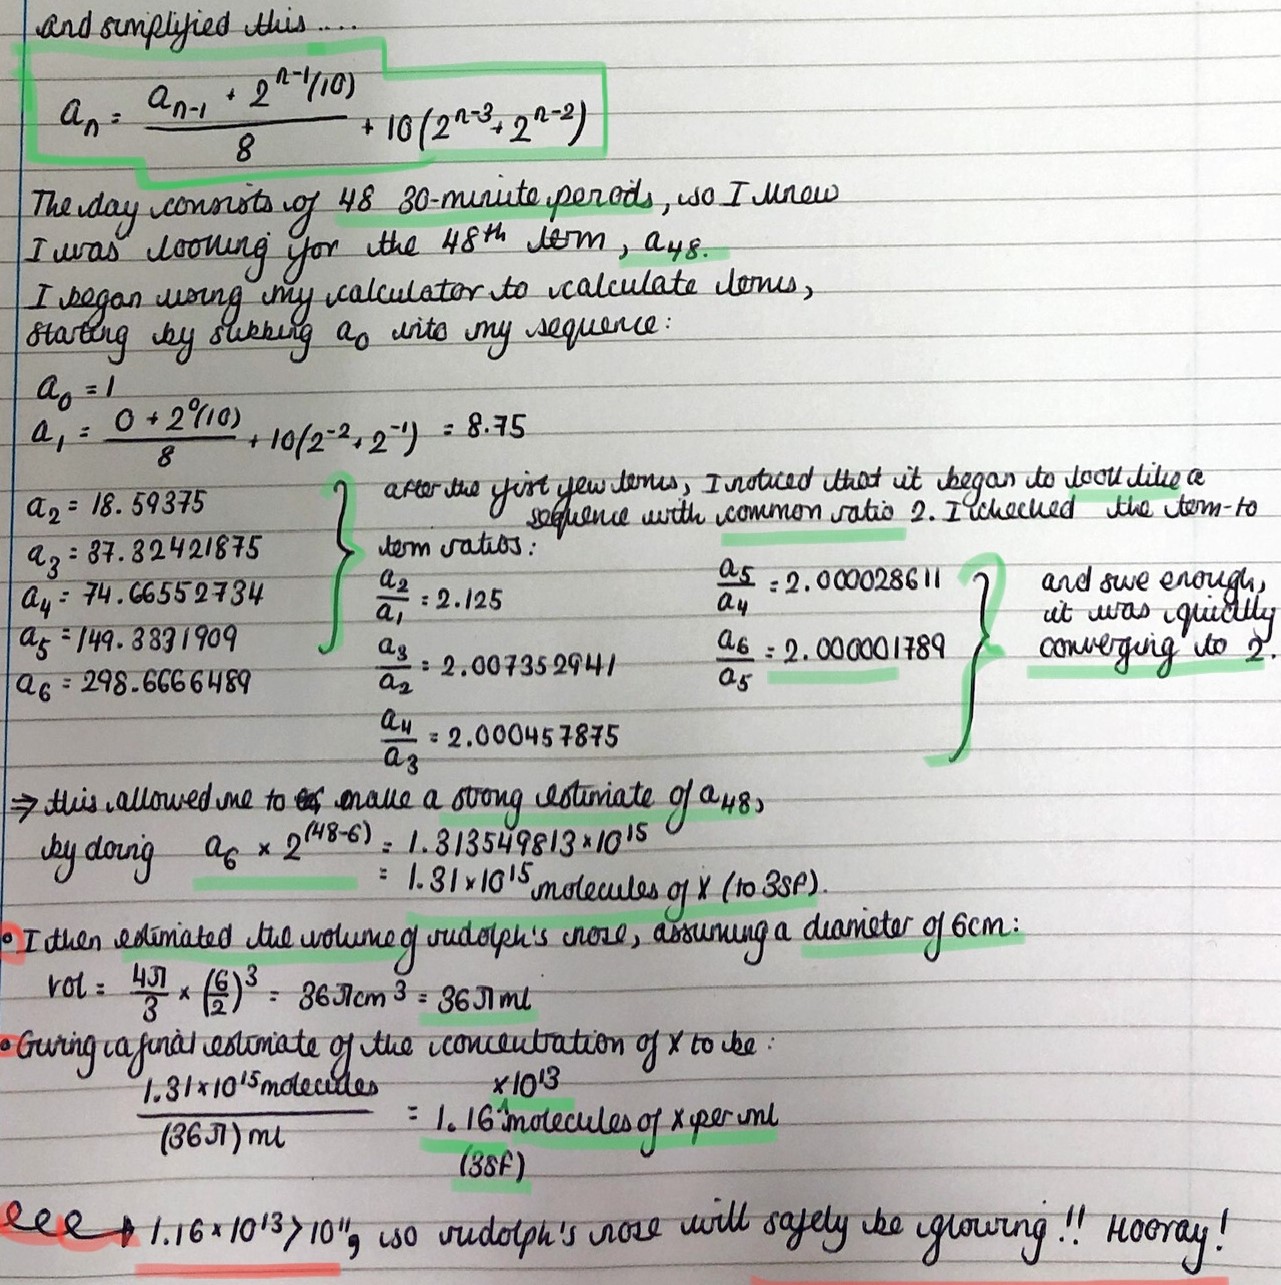 and simplified this ....
aₙ = (aₙ₋₁ + 2ⁿ⁻¹(10)) / 8 + 10(2ⁿ⁻³ + 2ⁿ⁻²)
The day consists of 48 30-minute periods, so I knew
I was looking for the 48th term, a₄₈.
I began using my calculator to calculate terms,
starting by subbing a₀ into my sequence:
a₀ = 1
a₁ = (0 + 2⁰(10)) / 8 + 10(2⁻² + 2⁻¹) = 8.75
a₂ = 18.59375
a₃ = 37.32421875
a₄ = 74.66552734
a₅ = 149.3331909
a₆ = 298.6666489
after the first few terms, I noticed that it began to look like a
sequence with common ratio 2. I checked the term-to
term ratios:
a₂/a₁ = 2.125
a₃/a₂ = 2.007352941
a₄/a₃ = 2.000457875
a₅/a₄ = 2.000028611
a₆/a₅ = 2.000001789
and sure enough,
it was quickly
converging to 2.
⇒ this allowed me to make a strong estimate of a₄₈,
by doing a₆ × 2⁽⁴⁸⁻⁶⁾ = 1.313549813 × 10¹⁵
= 1.31 × 10¹⁵ molecules of X (to 3SF).
• I then estimated the volume of rudolph's nose, assuming a diameter of 6cm:
vol = 4π/3 × (6/2)³ = 36π cm³ = 36π ml
• Giving a final estimate of the concentration of X to be:
1.31 × 10¹⁵ molecules / (36π) ml = 1.16 × 10¹³ molecules of X per ml
(3SF)
1.16 × 10¹³ > 10¹¹, so rudolph's nose will safely be glowing!! Hooray!